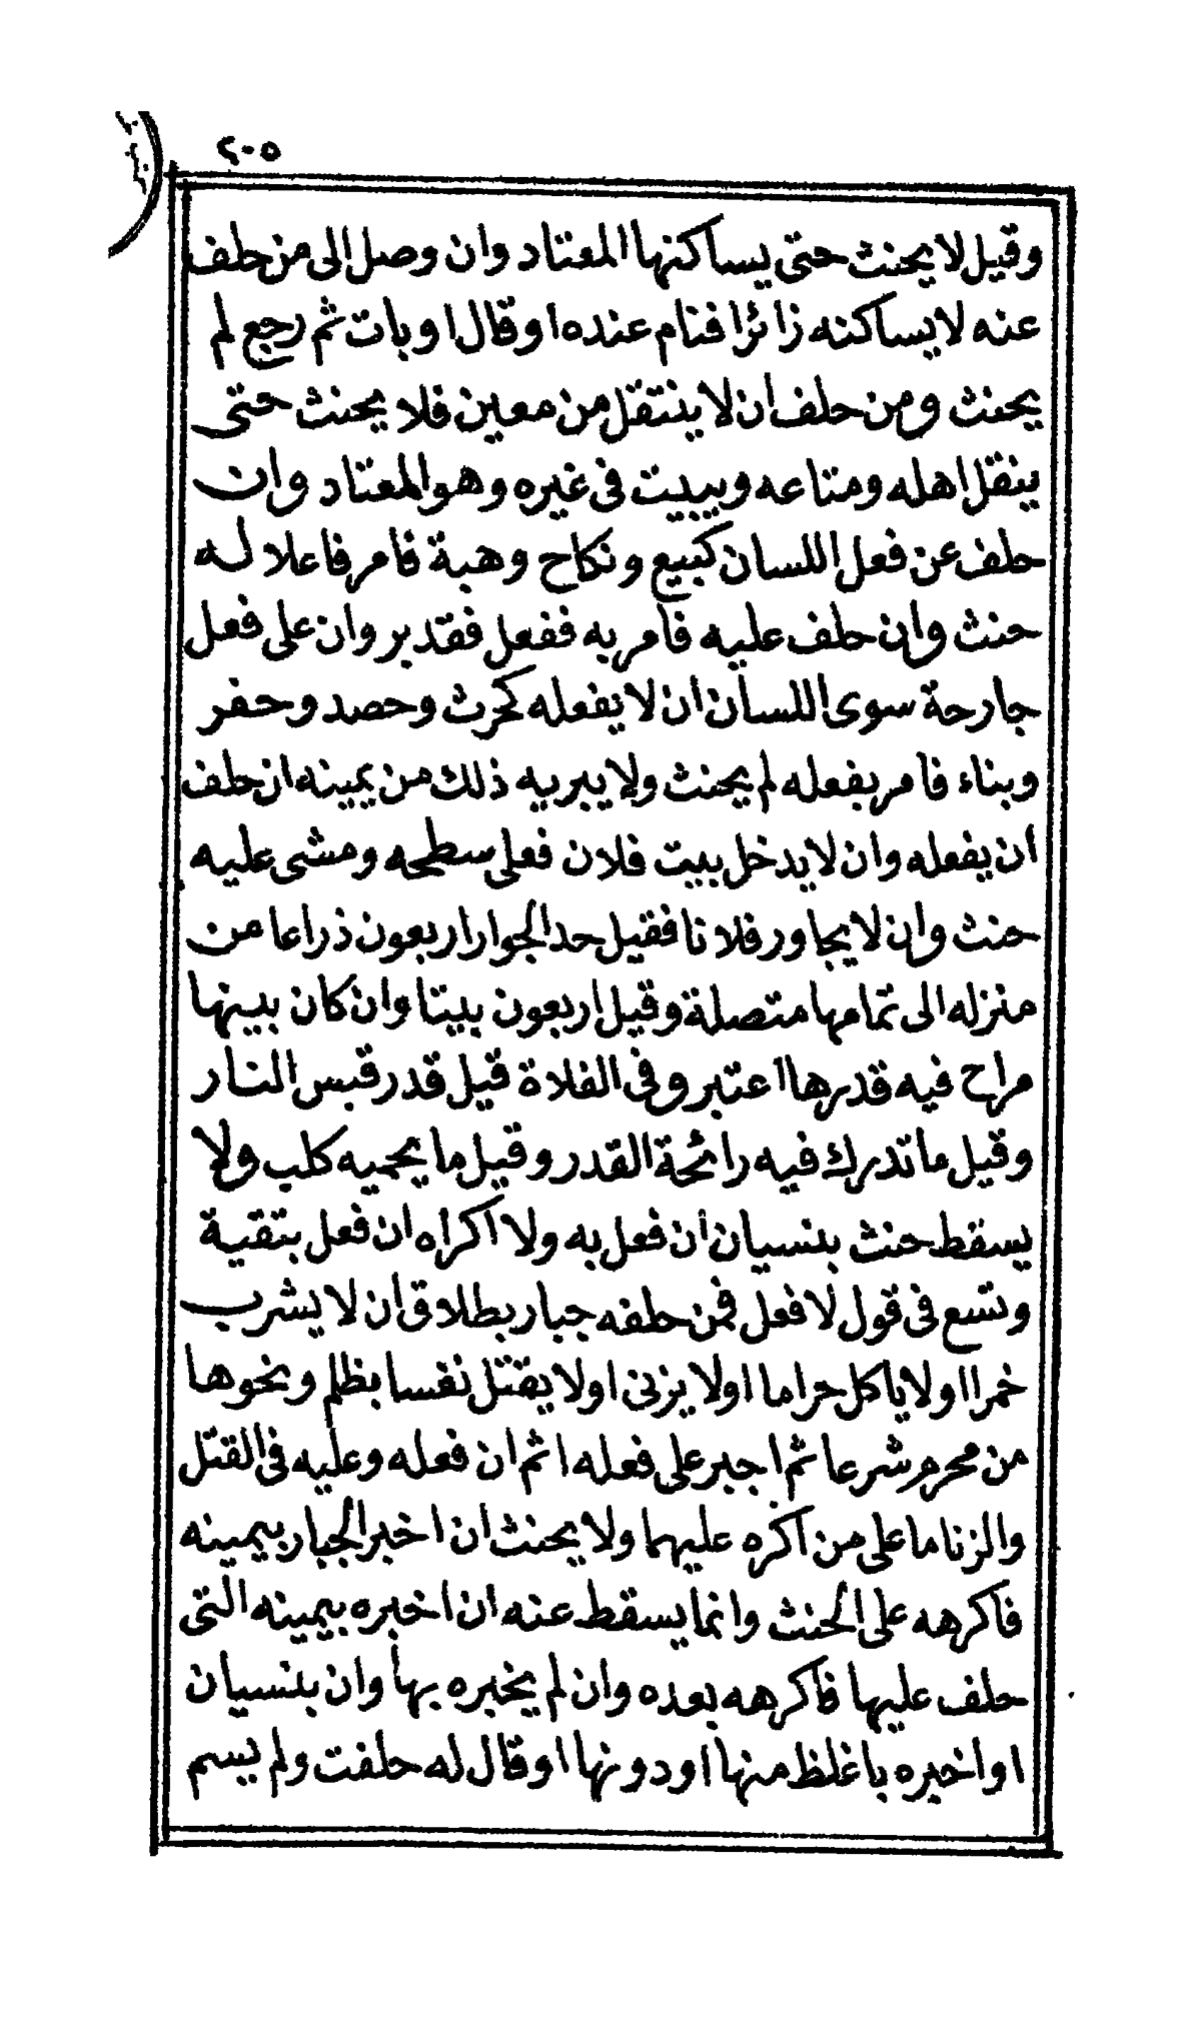 ٢٠٥
وقيل لا يحنث حتى يساكنها المعتاد وان وصل الى من حلف
عنه لا يساكنه زائرا فنام عنده او قال او بات ثم رجع لم
يحنث ومن حلف ان لا ينتقل من معين فلا يحنث حتى
ينقل اهله ومتاعه ويبيت فى غيره وهو المعتاد وان
حلف عن فعل اللسان كبيع ونكاح وهبة فامر فاعلا له
حنث وان حلف عليه فامر به ففعل فقد بر وان على فعل
جارحة سوى اللسان ان لا يفعله كحرث وحصد وحفر
وبناء فامر بفعله لم يحنث ولا يبر به ذلك من يمينه ان حلف
ان يفعله وان لا يدخل بيت فلان فعلى سطحه ومشى عليه
حنث وان لا يجاور فلانا فقيل حد الجوار اربعون ذراعا من
منزله الى تمامها متصلة وقيل اربعون بيتا وان كان بينها
مراح فيه قدرها اعتبر وفى الفلاة قيل قدر قبس النار
وقيل ما تدرك فيه رائحة القدر وقيل ما يحميه كلب ولا
يسقط حنث بنسيان ان فعل به ولا اكراه ان فعل بتقية
وتسع فى قول لا فعل فمن حلفه جبار بطلاق ان لا يشرب
خمرا او لا ياكل حراما او لا يزنى او لا يقتل نفسا بظلم ونحوها
من محرم شرعا ثم اجبر على فعله اثم ان فعله وعليه فى القتل
والزنا ما على من اكره عليهما ولا يحنث ان اخبر الجبار بيمينه
فاكرهه على الحنث وانما يسقط عنه ان اخبره بيمينه التى
حلف عليها فاكرهه بعده وان لم يخبره بها وان بنسيان
او اخبره باغلظ منها او دونها او قال له حلفت ولم يسم